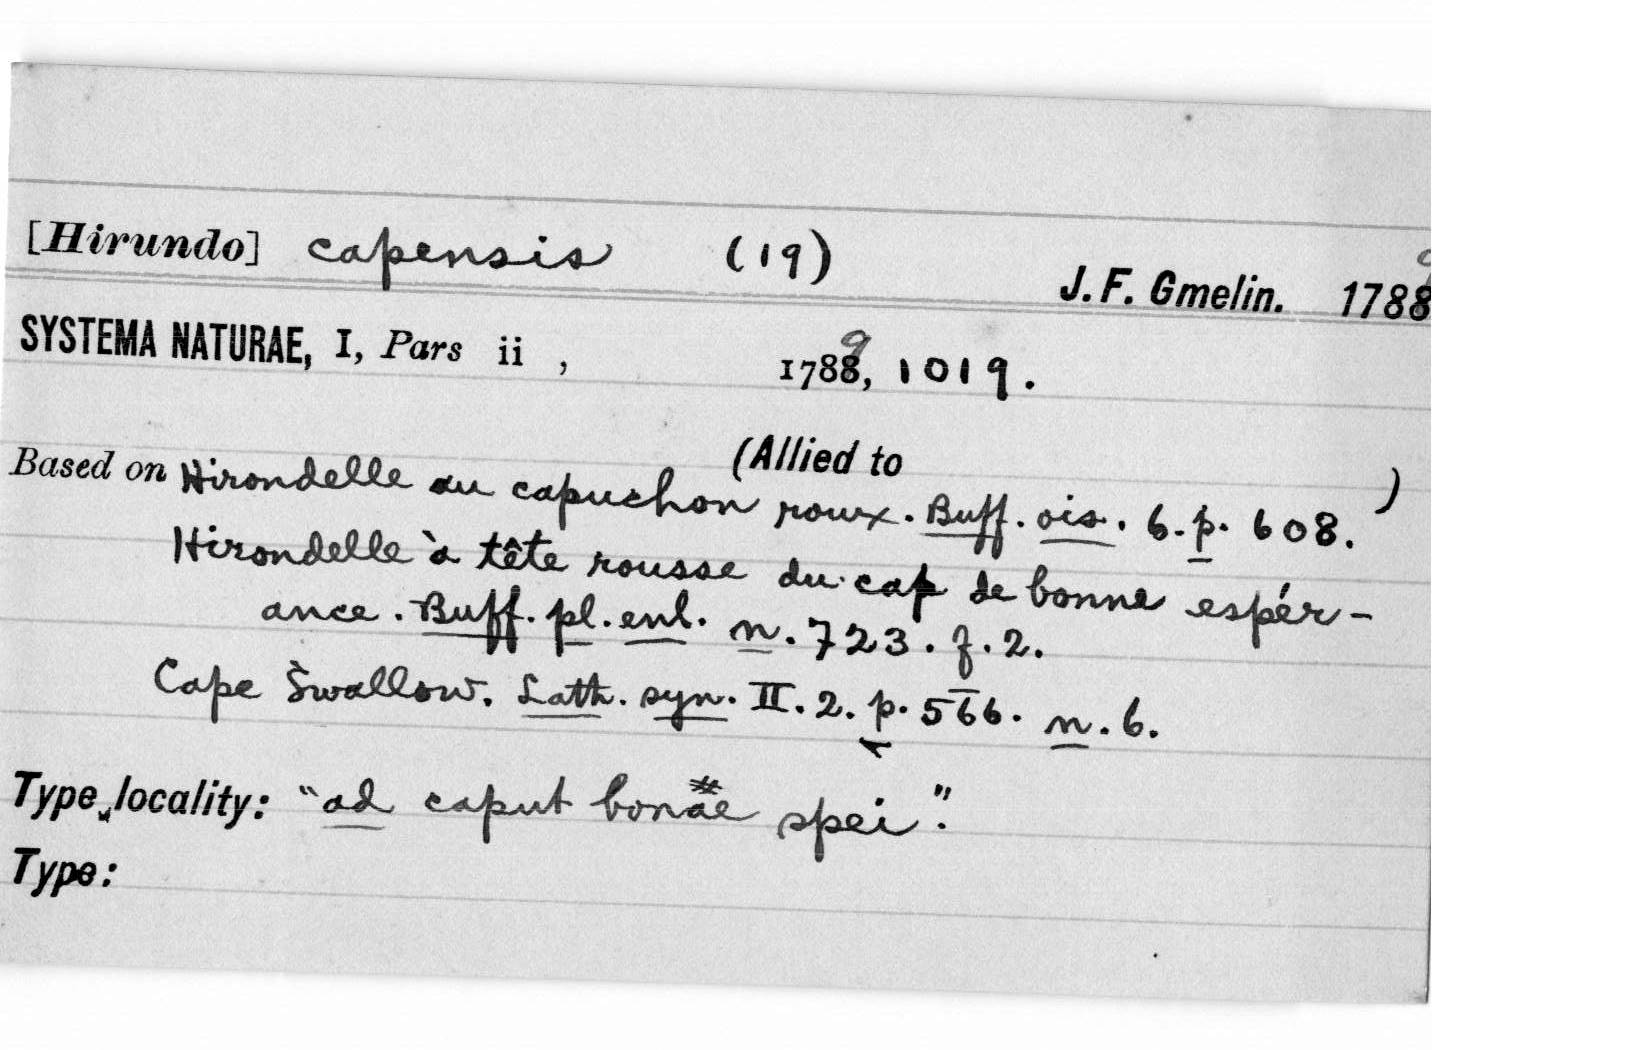 [Hirundo] capensis (19)
J. F. Gmelin. 1788 9
SYSTEMA NATURAE, I, Pars ii , 1788 9, 1019.
(Allied to )
Based on Hirondelle au capuchon roux. Buff. ois. 6. p. 608.
Hirondelle à tête rousse du cap de bonne espér-
ance. Buff. pl. enl. n. 723. f. 2.
Cape Swallow. Lath. syn. II. 2. p. 566. n. 6.
Type locality: "ad caput bonae spei".
Type: